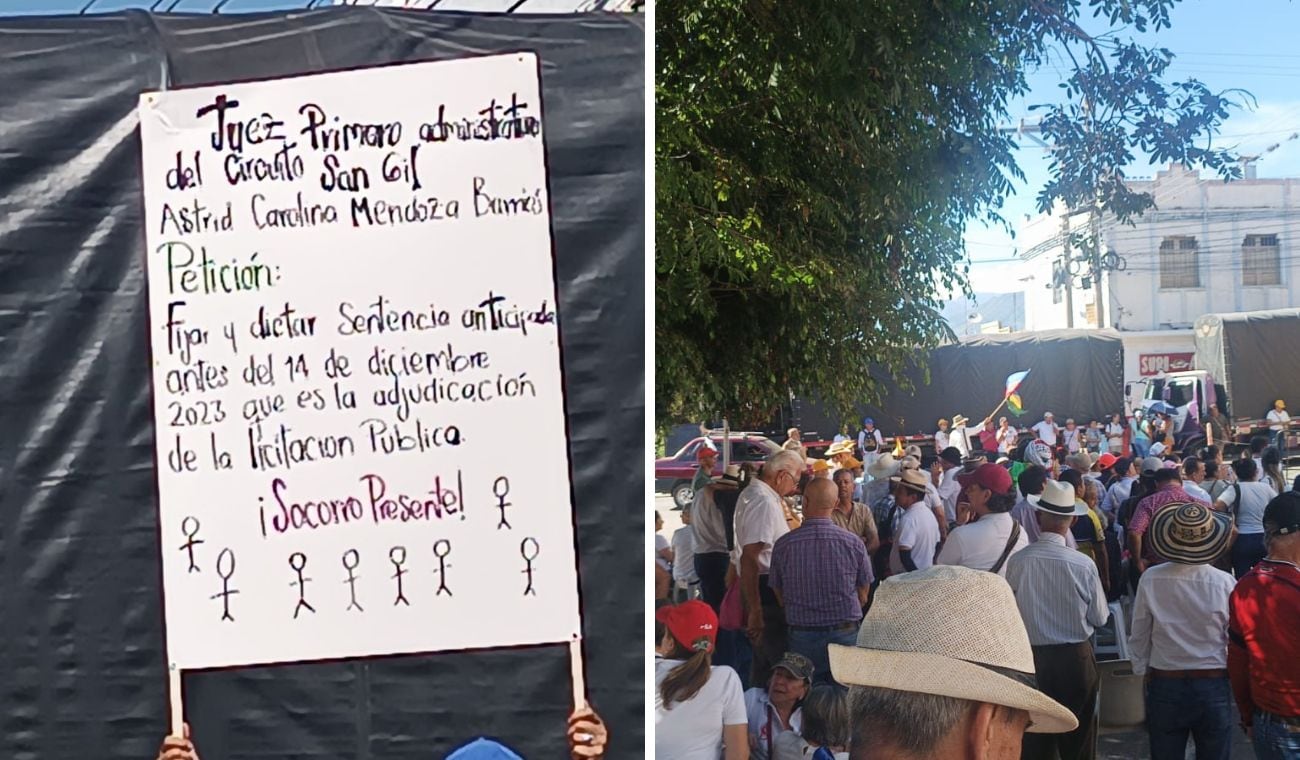 Juez Primero administrativo
del Circuito San Gil
Astrid Carolina Mendoza Barrios
Petición:
Fijar y dictar Sentencia anticipada
antes del 14 de diciembre
2023 que es la adjudicación
de la licitacion Pública.
¡Socorro Presente!